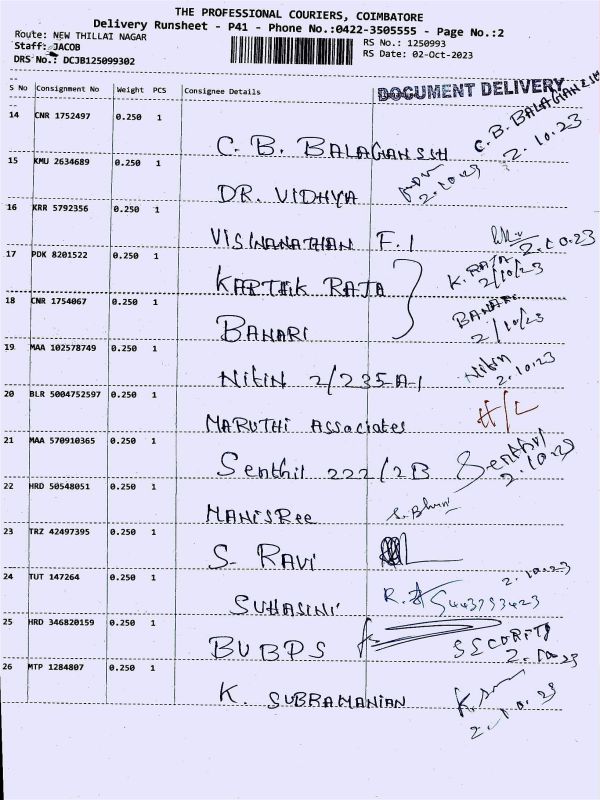 THE PROFESSIONAL COURIERS, COIMBATORE
Delivery Runsheet - P41 - Phone No.:0422-3505555 - Page No.:2
Route: NEW THILLAI NAGAR
RS No.: 1250993
Staff: JACOB
RS Date: 02-Oct-2023
DRS No.: DCJB125099302
S No Consignment No Weight PCS Consignee Details
DOCUMENT DELIVERY
14 CNR 1752497 0.250 1
C. B. BALAGANESH C. B. BALAGANESH
2.10.23
15 KMU 2634689 0.250 1
DR. VIDHYA 2.10.23
16 KRR 5792356 0.250 1
VISWANATHAN F.1 2.10.23
17 PDK 8201522 0.250 1
KARTHIK RAJA K. RAJA
2/10/23
18 CNR 1754067 0.250 1
BANARI BANARI
2/10/23
19 MAA 102578749 0.250 1
Nitin 2/235-A1 Nitin
2.10.23
20 BLR 5004752597 0.250 1
MARUTHI Associates H/L
21 MAA 570910365 0.250 1
Senthil 222/2B Senthil
2.10.23
22 HRD 50548051 0.250 1
MANISRee
23 TRZ 42497395 0.250 1
S. RAVI
24 TUT 147264 0.250 1
2.10.23
SUHASINI
25 HRD 346820159 0.250 1
BUBPS SECORITY
2.10.23
26 MTP 1284807 0.250 1
K. SUBRAMANIAN
2.10.23